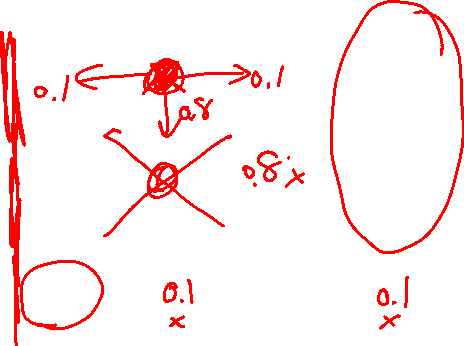 0.1 0.1
0.8
0.8x
0.1 0.1
x x